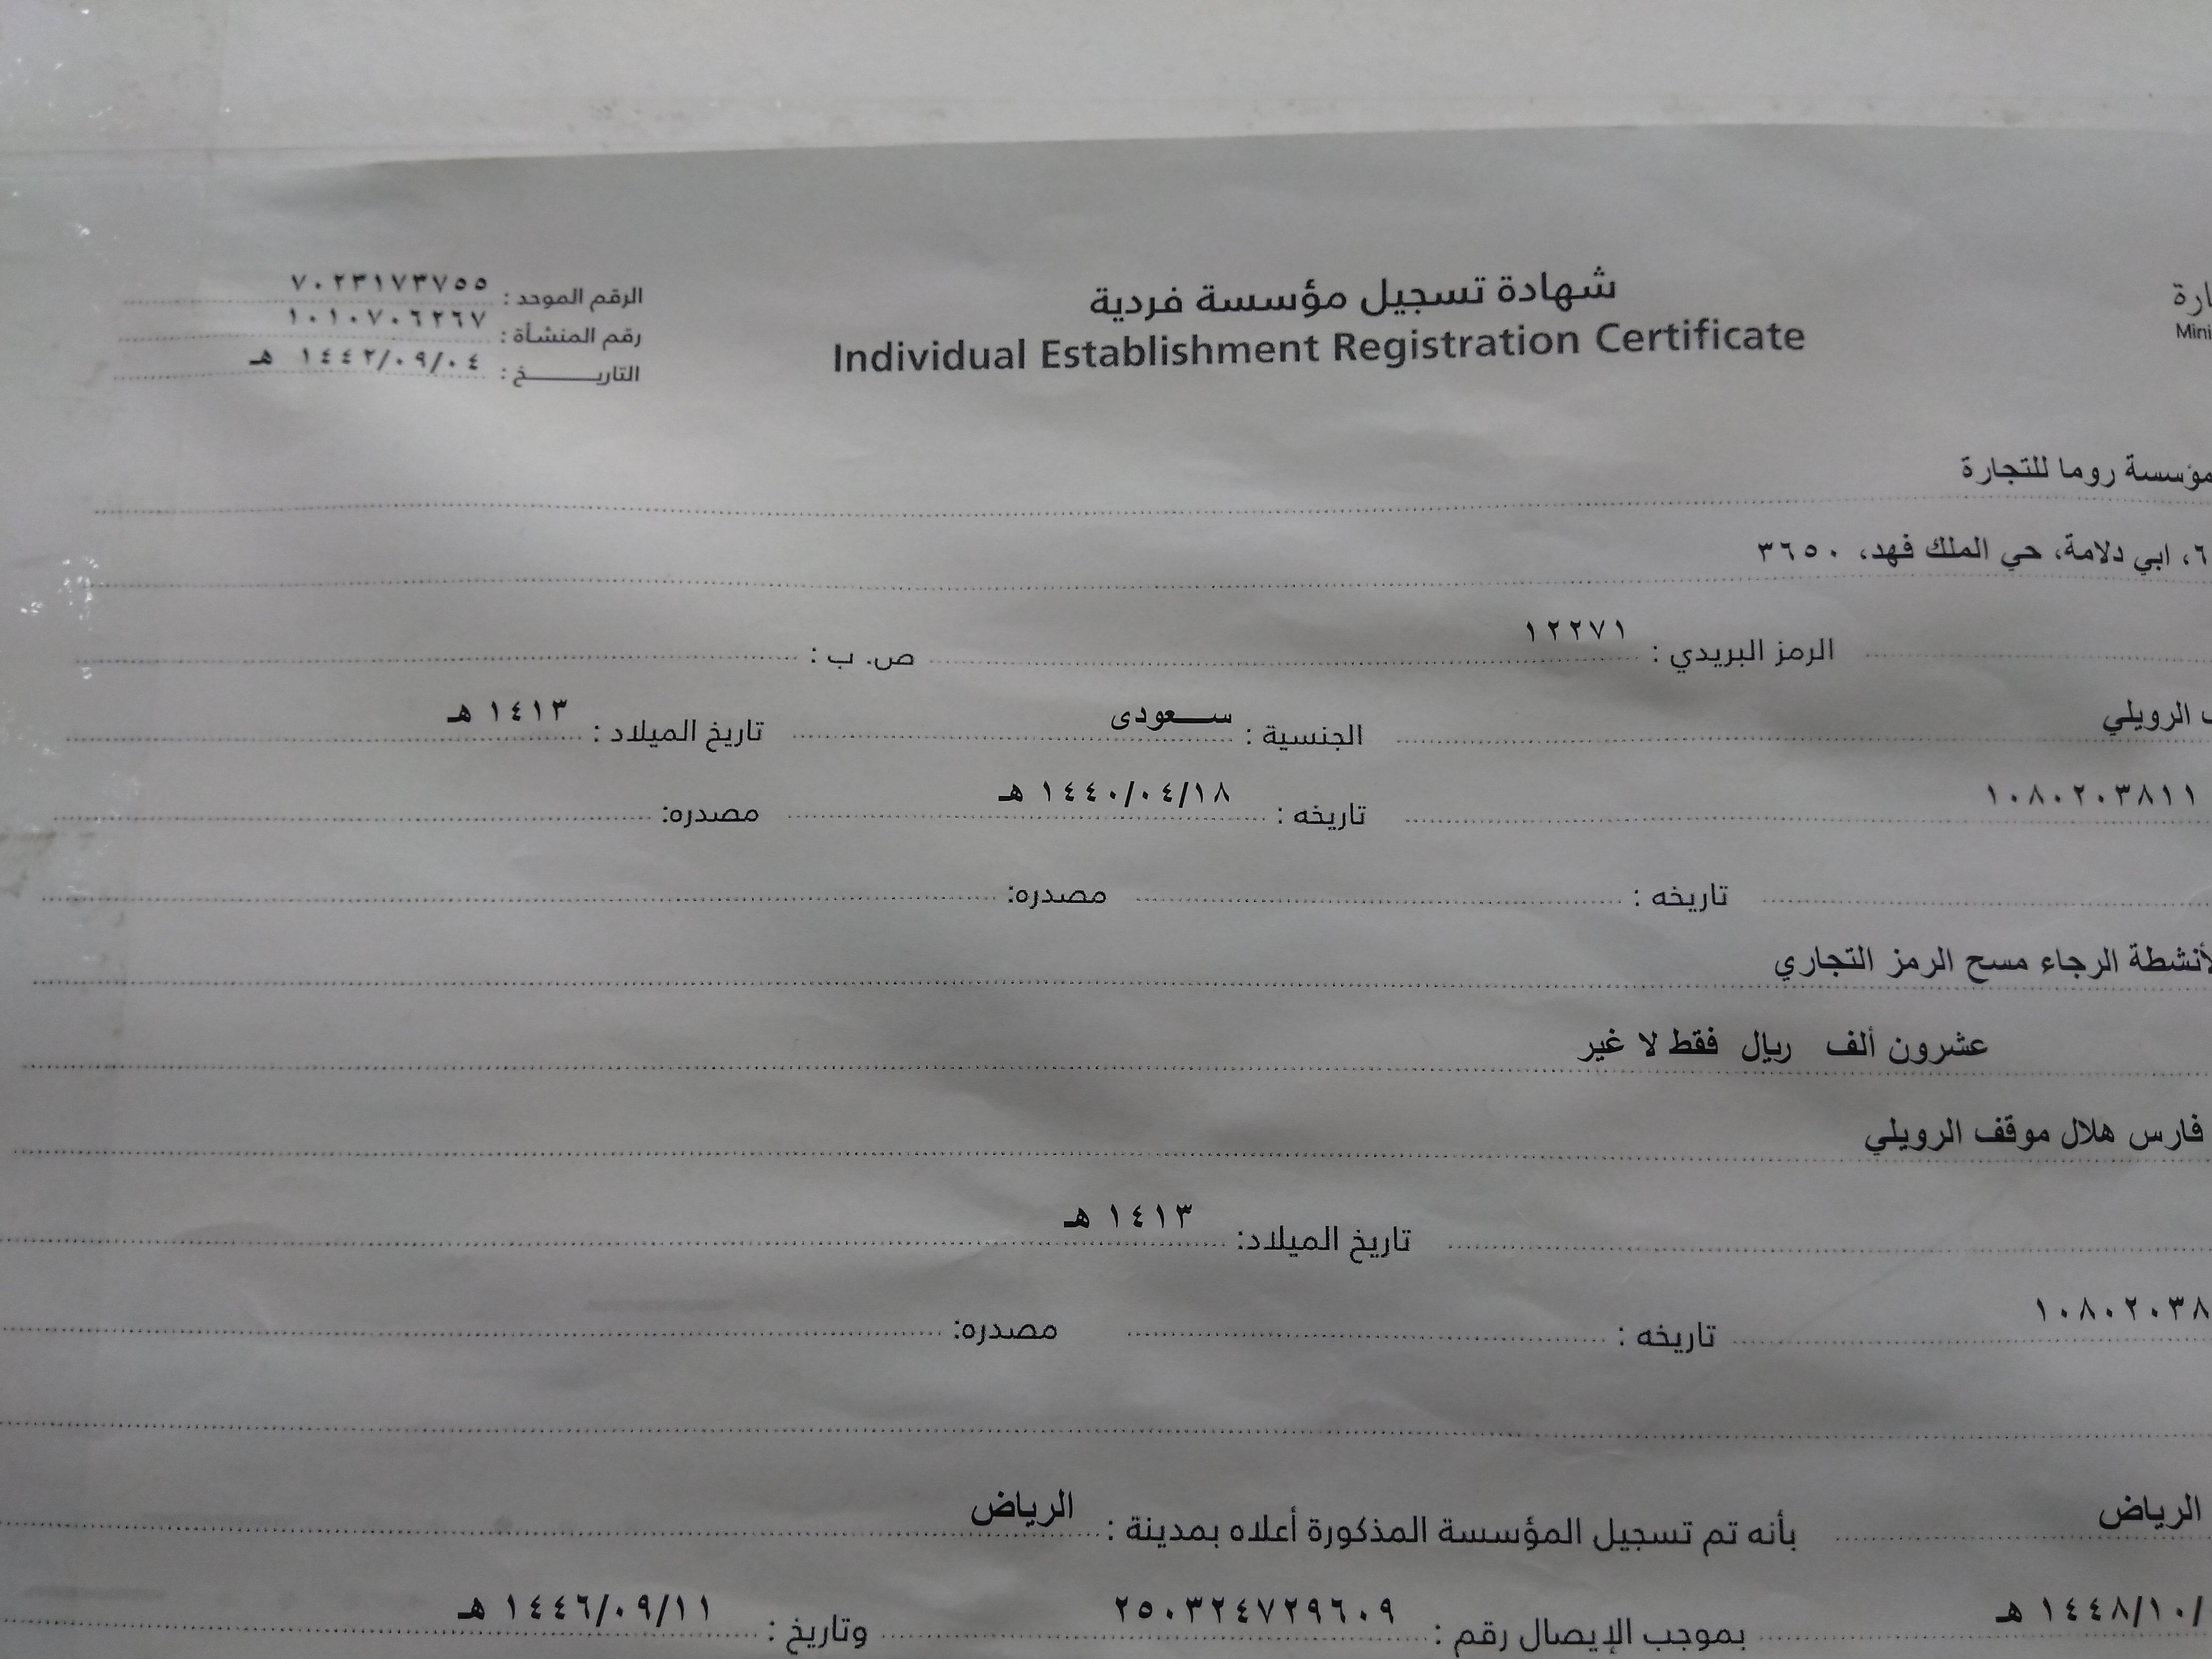 شهادة تسجيل مؤسسة فردية
Individual Establishment Registration Certificate
الرقم الموحد : ٧٠٢٣١٧٣٧٥٥
رقم المنشأة : ١٠١٠٧٠٦٢٦٧
التاريـــــــخ : ١٤٤٢/٠٩/٠٤ هـ
مؤسسة روما للتجارة
٦، ابي دلامة، حي الملك فهد، ٣٦٥٠
الرمز البريدي : ١٢٢٧١ ص. ب :
الرويلي الجنسية : ســـعودى تاريخ الميلاد : ١٤١٣ هـ
١٠٨٠٢٠٣٨١١ تاريخه : ١٤٤٠/٠٤/١٨ هـ مصدره:
تاريخه : مصدره:
لأنشطة الرجاء مسح الرمز التجاري
عشرون ألف ريال فقط لا غير
فارس هلال موقف الرويلي
تاريخ الميلاد: ١٤١٣ هـ
١٠٨٠٢٠٣٨ تاريخه : مصدره:
الرياض بأنه تم تسجيل المؤسسة المذكورة أعلاه بمدينة : الرياض
١٤٤٨/١٠/ هـ بموجب الإيصال رقم : ٢٥٠٣٢٤٧٢٩٦٠٩ وتاريخ : ١٤٤٦/٠٩/١١ هـ